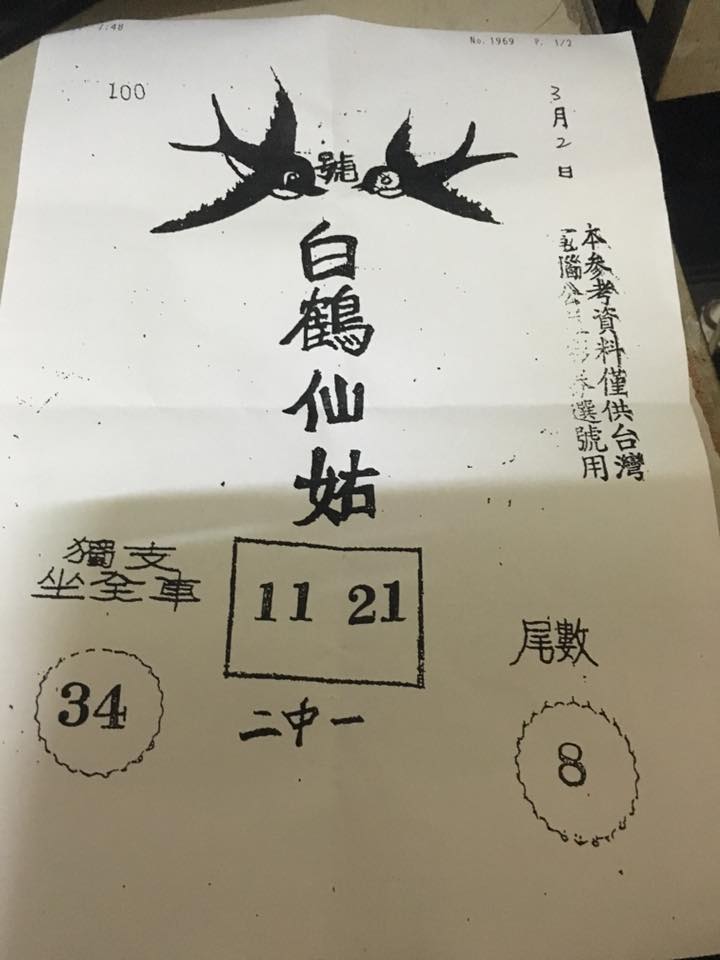 7:48
No. 1969 P. 1/2
100
3月2日
號
白鶴仙姑
本参考資料僅供台灣
電腦公益彩券選號用
獨支
坐全車
34
11 21
二中一
尾數
8